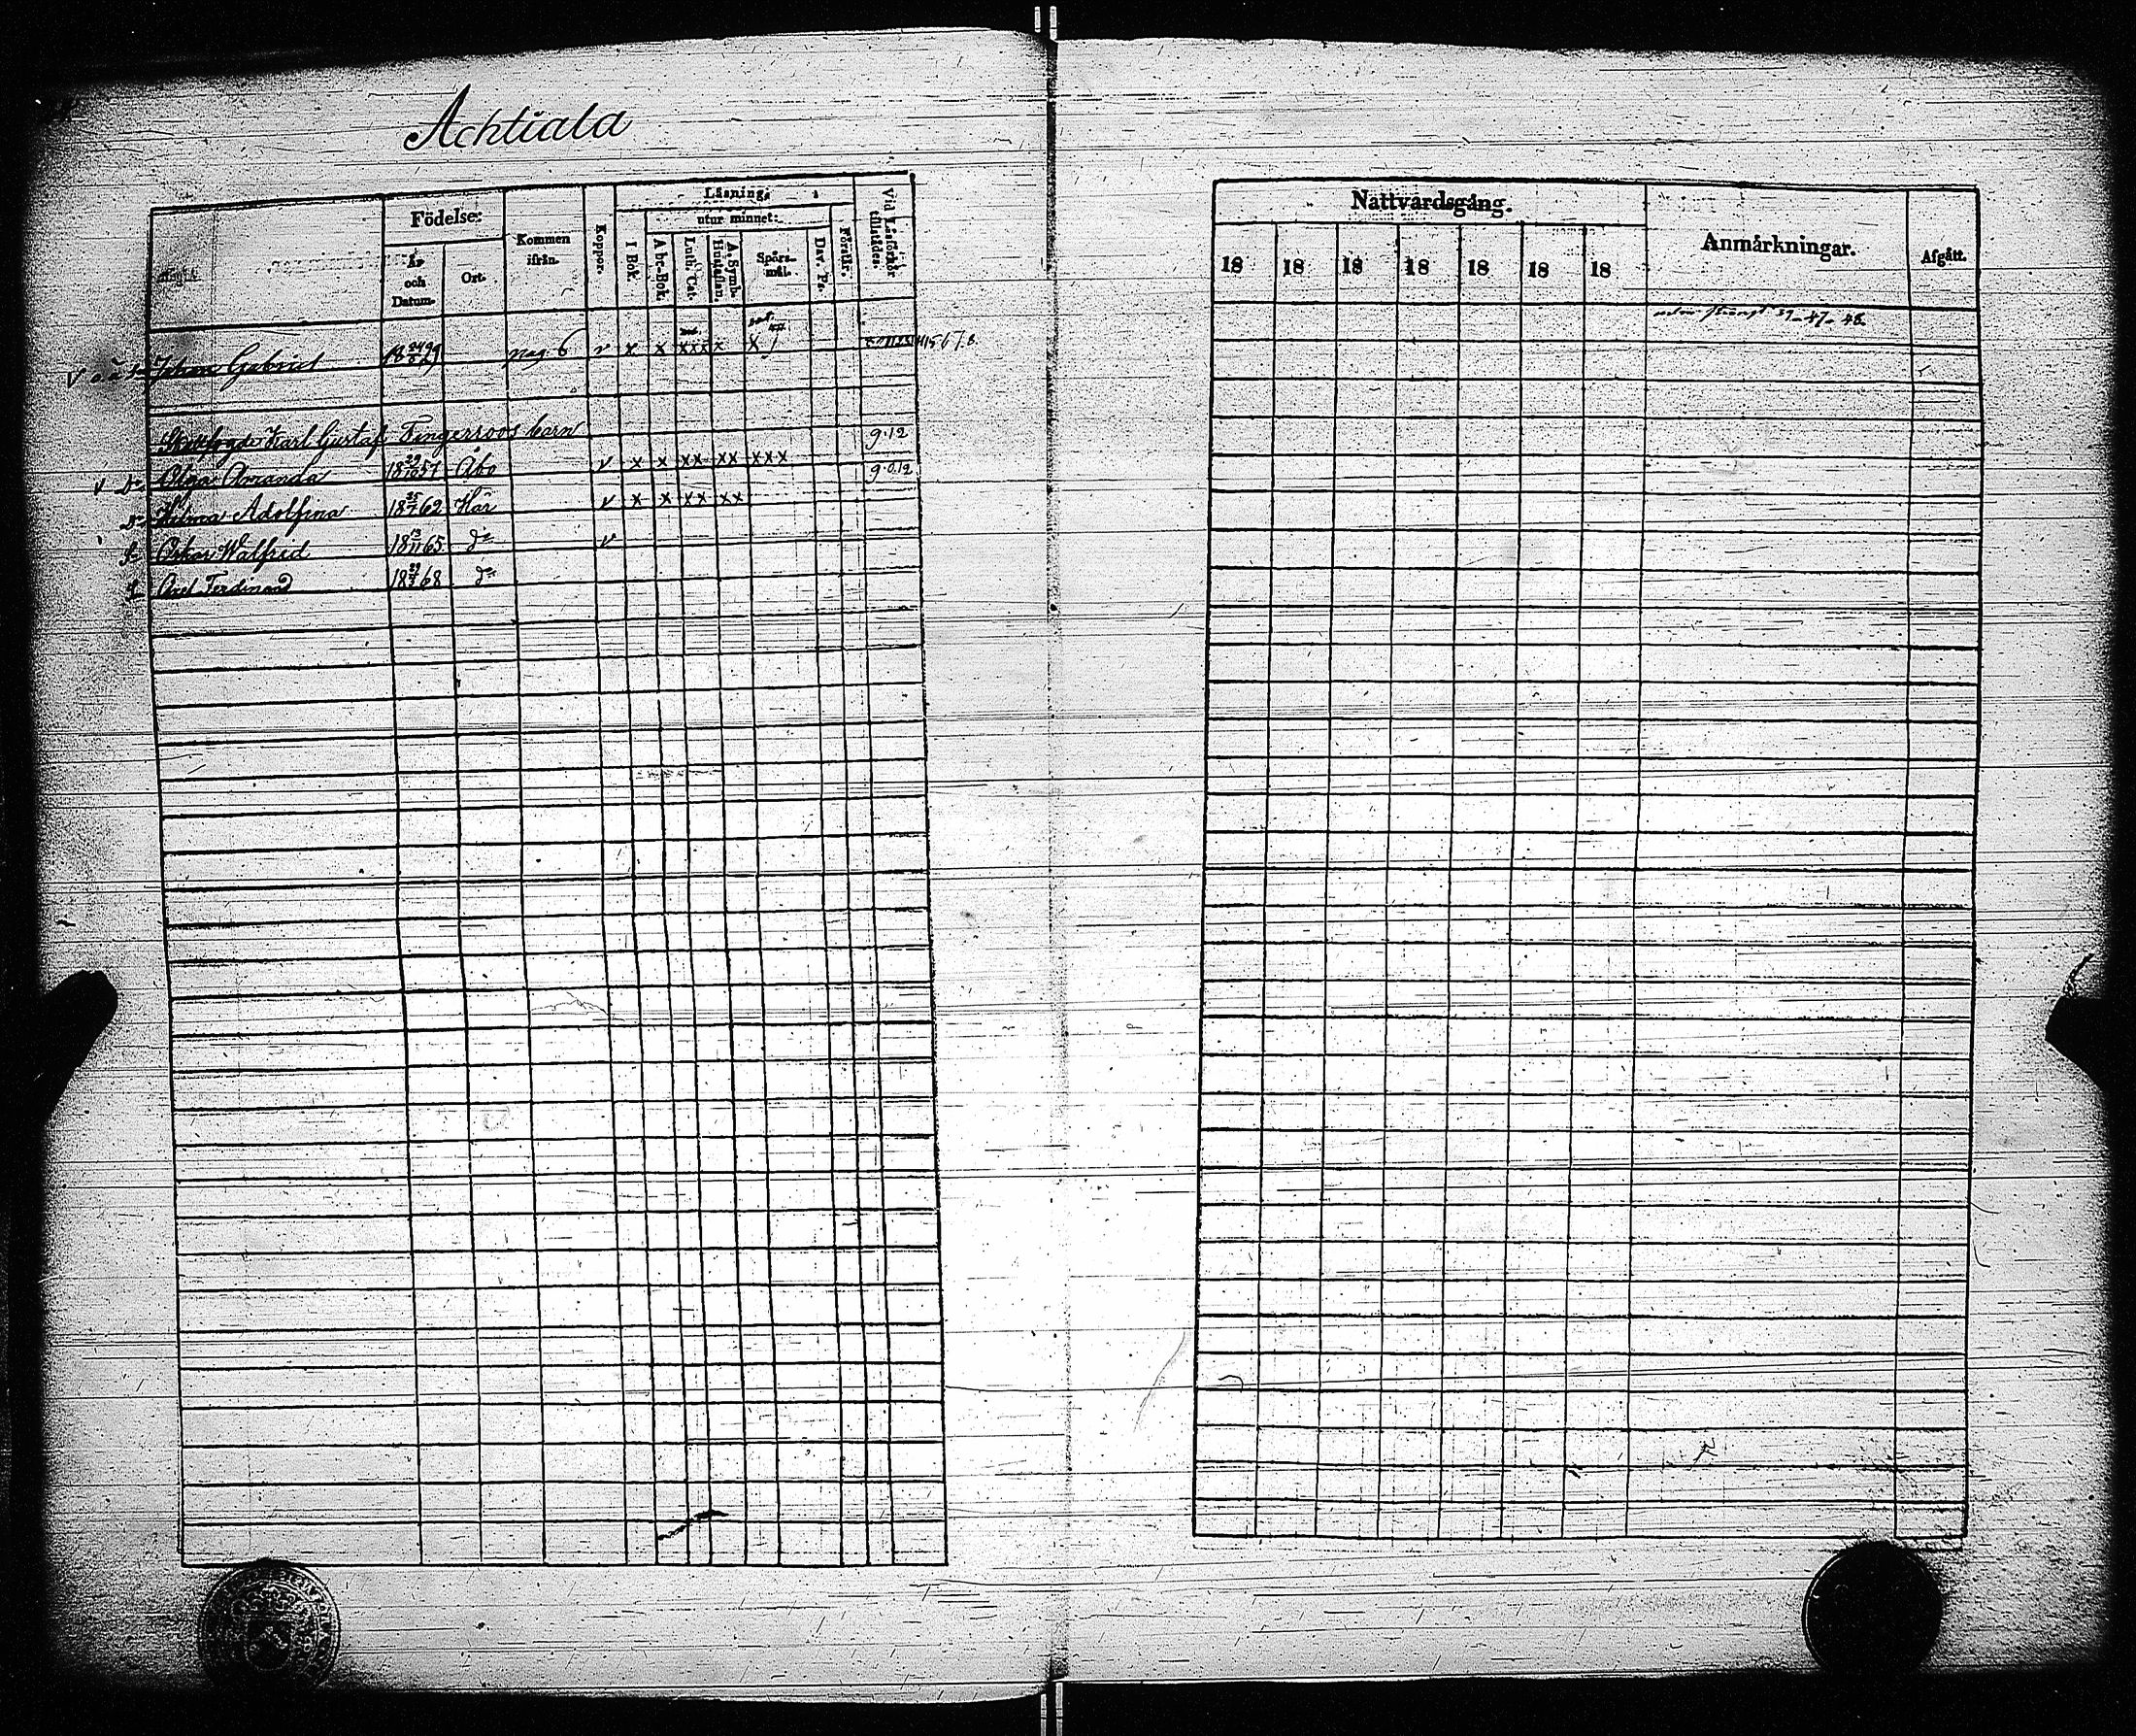 Achtiala
Födelse: Kommen ifrån. Koppor. Läsning: Vid Läsförhör tillstädes.
År och Datum. Ort. I Bok. utur minnet: Förstår.
A bc-Bok. Luth. Cat. A. Symb. Hustaflan. Spörsmål. Dav. Ps.
Johan Gabriel 18 24/8 29 pag. 6 v x x xxx x x
Karl Gustaf Tingerroos barn 9.12
v Dr Olga Amanda 18 29/10 57 Åbo v x x xx xx xxx 9.0.12
Dr Hilma Adolfina 18 25/7 62 Här v x x xx xx
S. Oskar Walfrid 18 13/11 65 do v
S. Axel Ferdinand 18 29/3 68 do
Nattvardsgång. Anmärkningar. Afgått.
18 18 18 18 18 18 18